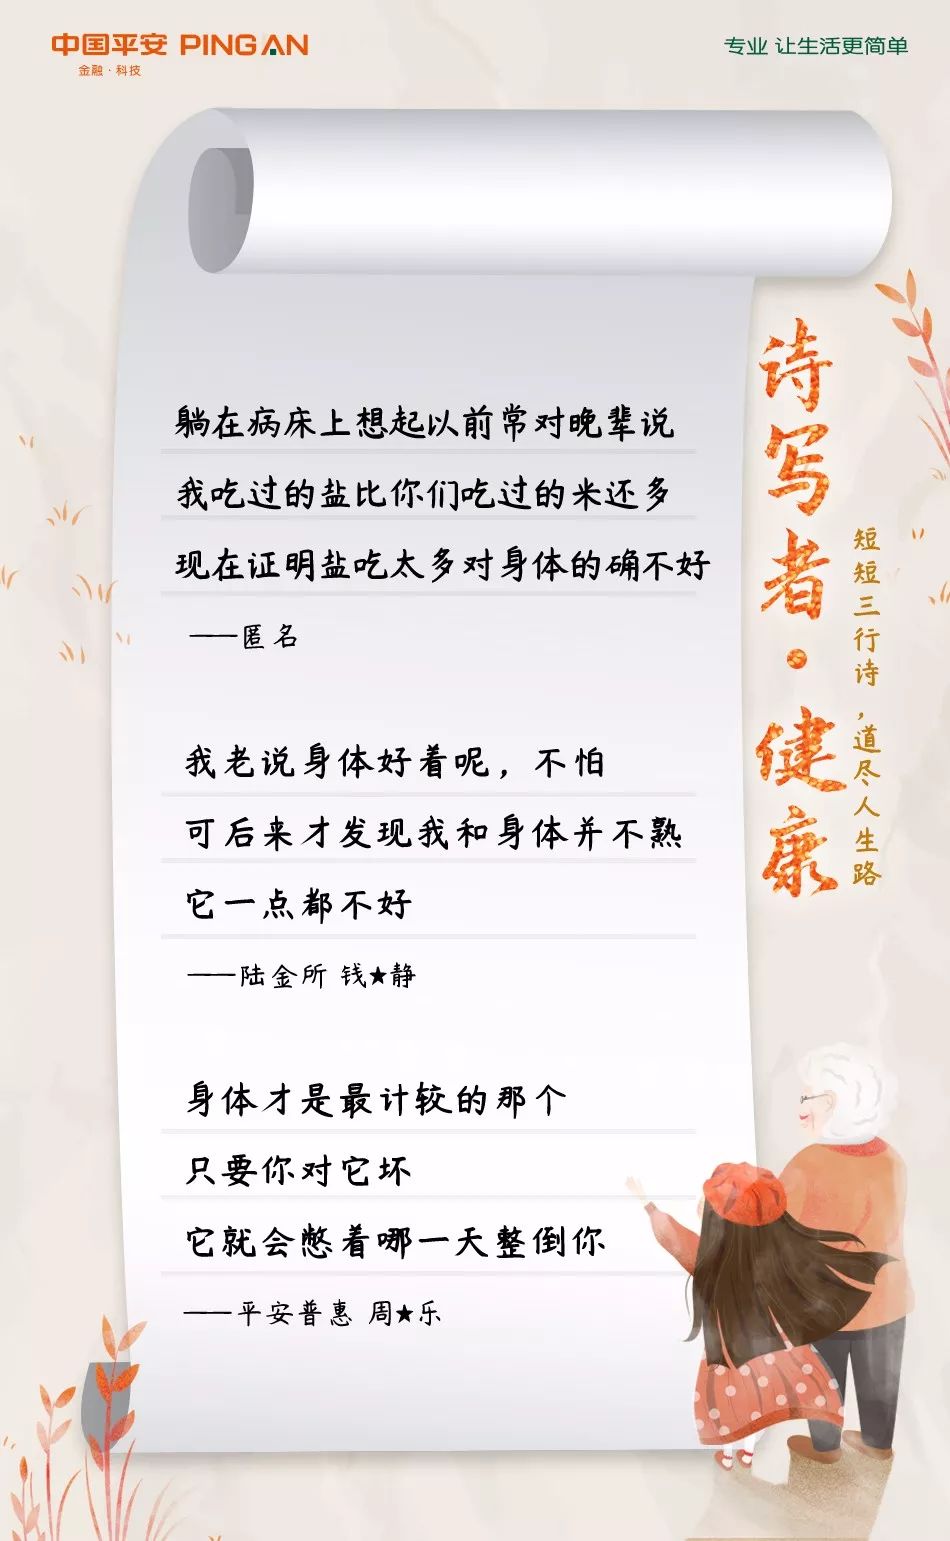 中国平安 PINGAN
金融·科技
专业 让生活更简单
诗写者·健康
短短三行诗，道尽人生路
躺在病床上想起以前常对晚辈说
我吃过的盐比你们吃过的米还多
现在证明盐吃太多对身体的确不好
——匿名
我老说身体好着呢，不怕
可后来才发现我和身体并不熟
它一点都不好
——陆金所 钱★静
身体才是最计较的那个
只要你对它坏
它就会憋着哪一天整倒你
——平安普惠 周★乐